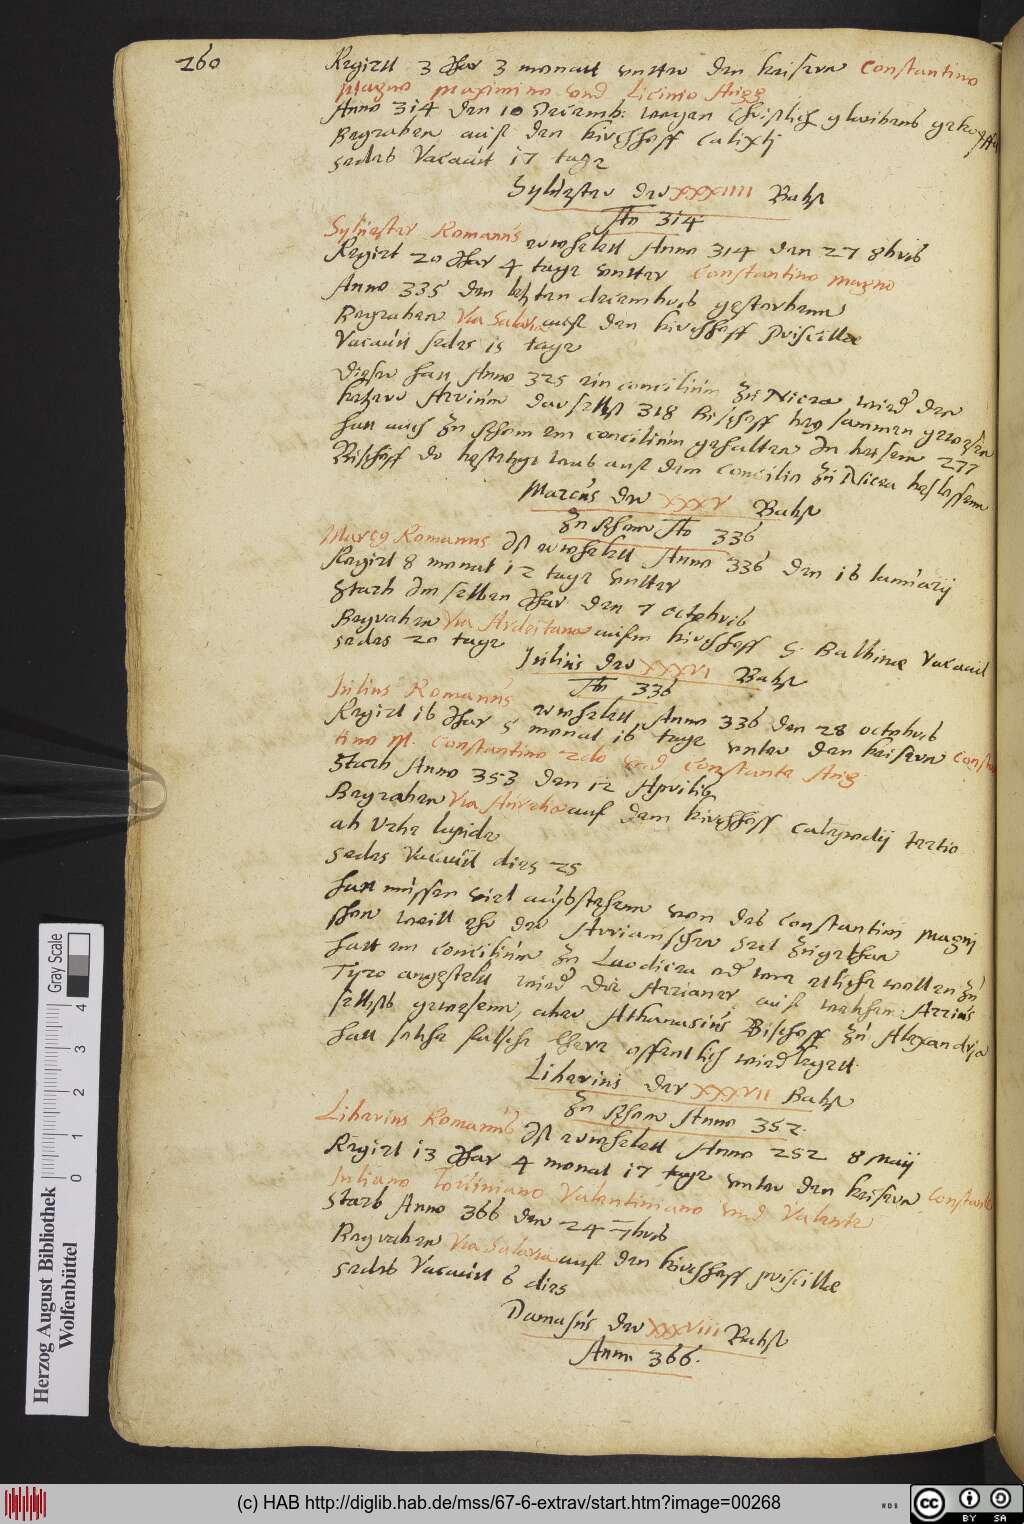 260
Regirtt 3 Jhar 3 monatt untter den keisern Constantino
Magno Maximino und Licinio Augg
Anno 314 den 10 Decemb: wegen Christlich glaubens gekopfft
Begraben auff den kirchhoff Calixtj
sedes Vacauit 17 tage
Syluester der XXXIIII Babst
Ao 314
Syluester Romanus erwhelett Anno 314 den 27 8bris
Regirt 20 Jhar 4 tage untter Constantino magno
Anno 335 den letzten decembris gestorbenn
Begraben Via Salaria auff den kirchhoff Priscillae
Vacauit sedes 15 tage
Dieser hatt Anno 325 ein concilium zu Nicea wider den
ketzer Arrium der selbst 318 Bischoff bey sammen gewesen
hatt auch zu Rhom ein concilium gehalten In beisein 277
Bischoff do bestetiget was auff dem concilio zu Nicea beslossenn
Marcus der XXXV Babst
zu Rhom Ao 336
Marcus Romanus Ist erwhelett Anno 336 den 16 Januarij
Regirt 8 monat 12 tage untter
Starb Im selben Jhar den 7 octobris
Begraben Via Ardeatana auffm kirchhoff S. Balbinae Vacauit
sedes 20 tage
Julius der XXXVI Babst
Ao 336
Julius Romanus erwhelett Anno 336 den 28 octobris
Regirt 16 Jhar 5 monat 16 tage unter den keisern
tino M. Constantino 2do und Constante Aug
Starb Anno 353 den 12 Aprilis
Begraben Via Aurelia auf dem kirchhoff Calepodij tertio
ab Urbe lapide
sedes Vacauit dies 25
hatt müssen viel ausstehenn von des Constantini Magnj
Shon weill ehr der Arrianischen Sect zugethan
hatt ein concilium zu Laodicea
Tyro angestelt wider die Arrianer auff welchem Arrius
selbst gewesenn, aber Athanasius Bischoff zu Alexandria
hatt solche falsche lhere offentlich widerlegett.
Liberius der XXXVII Babst
zu Rhom Anno 352.
Liberius Romanus Ist erwhelett Anno 252 8 Maij
Regirt 13 Jhar 4 monat 17 tage unter den keisern
Juliano Jouiniano Valentiniano und Valente
Starb Anno 366 den 24 7bris
Begraben Via Salaria auff den kirchhoff priscillae
sedes Vacauit 6 dies
Damasus der XXXVIII Babst
Anno 366.
Herzog August Bibliothek
Wolfenbüttel
Gray Scale
0 1 2 3 4
(c) HAB http://diglib.hab.de/mss/67-6-extrav/start.htm?image=00268
WDB
cc BY SA